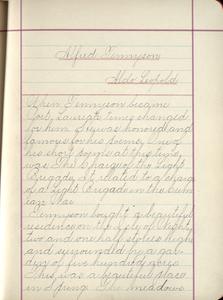 Alfred Tennyson
Aldo Leopold
When Tennyson became
Poet Laureate times changed
for him. He was honored and
famous for his poems. One of
his short poems at this time,
was "The Charge of the Light
Brigade". It related to a charge
of a Light Brigade in the Crim-
ean War.
Tennyson bought a beautiful
residence on the Isle of Wight,
two and one half stories high
and surrounded by a gar-
den of five hundred acres.
This was a beautiful place
in Spring. The meadows